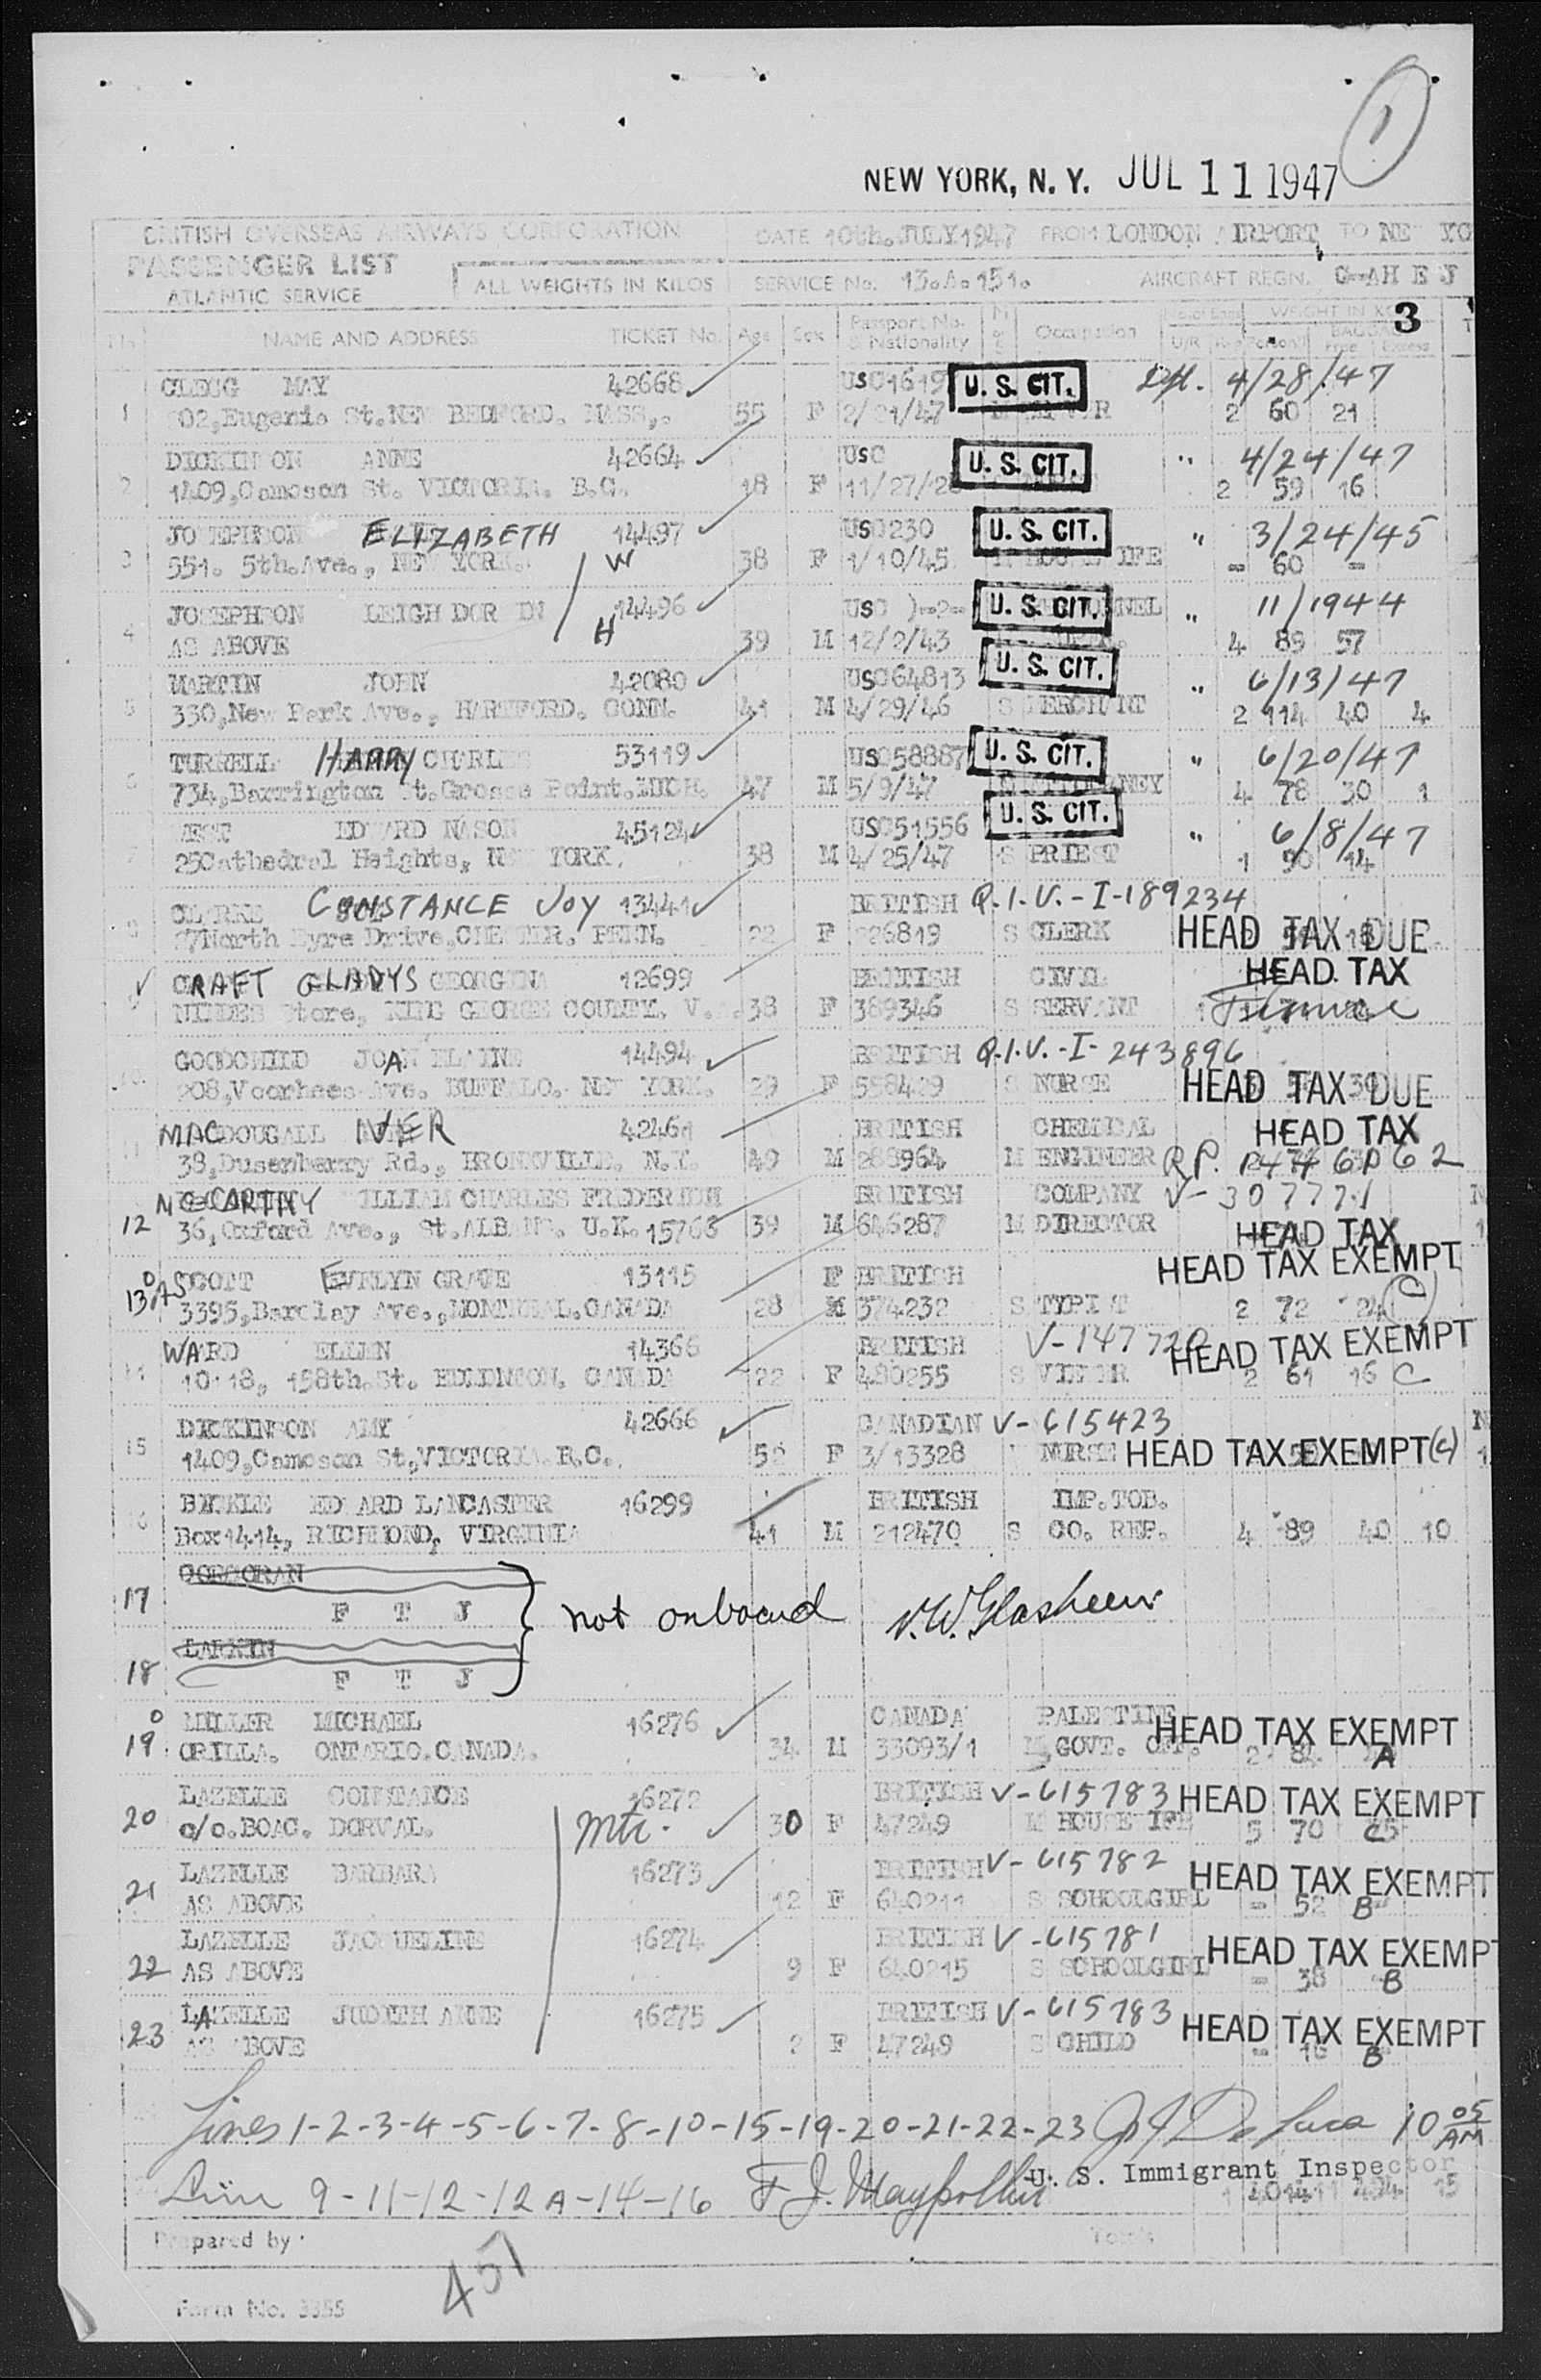 1
NEW YORK, N. Y. JUL 11 1947
BRITISH OVERSEAS AIRWAYS CORPORATION DATE 10th. JULY 1947 FROM LONDON AIRPORT TO NE YO
PASSENGER LIST ALL WEIGHTS IN KILOS SERVICE No. 13.A.151. AIRCRAFT REGN. G-AH E J
ATLANTIC SERVICE
3
NAME AND ADDRESS TICKET No. Age Sex Passport No. & Nationality Occupation WEIGHT IN
U/R Free Excess
CLEGG MAY 42668 USC1619 U. S. CIT. 4/28/47
1 Eugenia St. NEW BEDFORD. MASS,. 55 F 2/21/47 2 60 21
DICKIN ON ANNE 42664 USC U. S. CIT. " 4/24/47
2 1409, Camoson St. VICTORIA. B.C. 18 F 11/27/2 2 59 16
JO EPHSON ELIZABETH 14497 USC230 U. S. CIT. " 3/24/45
3 551. 5th. Ave., NEW YORK. W 38 F 1/10/45 IFE - 60 -
JOSEPHSON LEIGH DOR IN 14496 USC U. S. CIT. NEL " 11/1944
4 AS ABOVE H 39 M 12/2/43 4 89 57
MARTIN JOHN 42080 USC64813 U. S. CIT. " 6/13/47
5 330, New Park Ave., HARTFORD. CONN. 41 M 4/29/46 S MERCHANT 2 114 40 4
TURRELL HARRY CHARLES 53119 USC58887 U. S. CIT. " 6/20/47
6 734, Barrington St. Grosse Point. MICH. 47 M 5/9/47 NEY 4 78 30 1
WEST EDWARD NASON 45124 USC51556 U. S. CIT. " 6/8/47
7 25Cathedral Heights, NEW YORK. 38 M 4/25/47 S PRIEST 1 90 14
CLARKE CONSTANCE JOY 13441 BRITISH Q.I.V.-I-189234
8 North Eyre Drive, CHESTER. PENN. 22 F 226819 S CLERK HEAD TAX DUE
CRAFT GLADYS GEORGINA 12699 BRITISH CIVIL HEAD TAX
9 Store, KING GEORGE COUNTY. V.A. 38 F 389346 S SERVANT
GOODCHILD JOAN ELAINE 14494 BRITISH Q.I.V.-I-243896
10 208, Voorhees Ave. BUFFALO. NEW YORK. 29 F 558429 S NURSE HEAD TAX DUE
MACDOUGALL IVER 42461 BRITISH CHEMICAL HEAD TAX
11 38, Dusenberry Rd., BRONXVILLE. N.Y. 49 M 288964 M ENGINEER R.P.
MCCARTHY ILLIAM CHARLES FREDERICK BRITISH COMPANY V-307771
12 36, Oxford Ave., St. ALBANS. U.K. 15768 39 M 646287 M DIRECTOR HEAD TAX
SCOTT EVELYN GRACE 13115 F BRITISH HEAD TAX EXEMPT
13 3395, Barclay Ave., MONTREAL. CANADA 28 M 374232 S TYPIST 2 72 24 (C)
WARD ELLEN 14366 BRITISH V-147720 HEAD TAX EXEMPT
14 158th. St. EDMONTON. CANADA 22 F 480255 S 2 61 16 C
DICKINSON AMY 42666 CANADIAN V-615423
15 1409, Camoson St., VICTORIA. B.C. 52 F 3/13328 NURSE HEAD TAX EXEMPT (C)
BICKLE EDWARD LANCASTER 16299 BRITISH IMP. TOB.
16 Box 1414, RICHMOND, VIRGINIA 41 M 212470 S CO. REP. 4 89 40 10
CORCORAN
17 F T J not onboard
LARKIN
18 F T J
MILLER MICHAEL 16276 CANADA PALESTINE HEAD TAX EXEMPT
19 ORILLA. ONTARIO. CANADA. 34 M 33093/1 GOVT. OFF. A
LAZELLE CONSTANCE 16272 BRITISH V-615783 HEAD TAX EXEMPT
20 c/o. BOAC. DORVAL. 30 F 47249 M HOUSEWIFE 5 70
LAZELLE BARBARA 16273 BRITISH V-615782 HEAD TAX EXEMPT
21 AS ABOVE 12 F 640211 S SCHOOLGIRL - 52 B
LAZELLE JACQUELINE 16274 BRITISH V-615781 HEAD TAX EXEMPT
22 AS ABOVE 9 F 640215 S SCHOOLGIRL - 38 B
LAZELLE JUDITH ANNE 16275 BRITISH V-615783 HEAD TAX EXEMPT
23 AS ABOVE 2 F 47249 S CHILD - 16 B
Lines 1-2-3-4-5-6-7-8-10-15-19-20-21-22-23 10 05 AM
U. S. Immigrant Inspector
Line 9-11-12-12A-14-16
Prepared by Totals
451
Form No. 3355